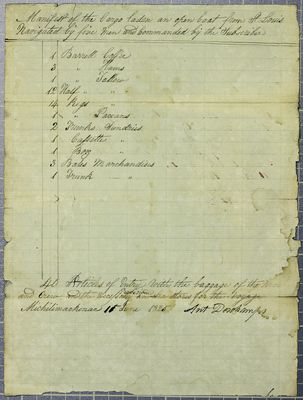 Manifest of the Cargo laden an open boat from St Louis
Navigated by five Men and commanded by the Subscriber
1 Barrell Coffee
3 " Hams
1 " Tallow
12 Half " "
14 Kegs "
1 " Paccans
2 Trunks Sundries
1 Cassette "
1 Bag "
3 Bales Marchandises
1 Trunk "
40 Articles of Entry with the baggage of the
and Crew & the necessary sea stores for the voyage
Michilimackinac 15 June 1825 Ant Deschamps